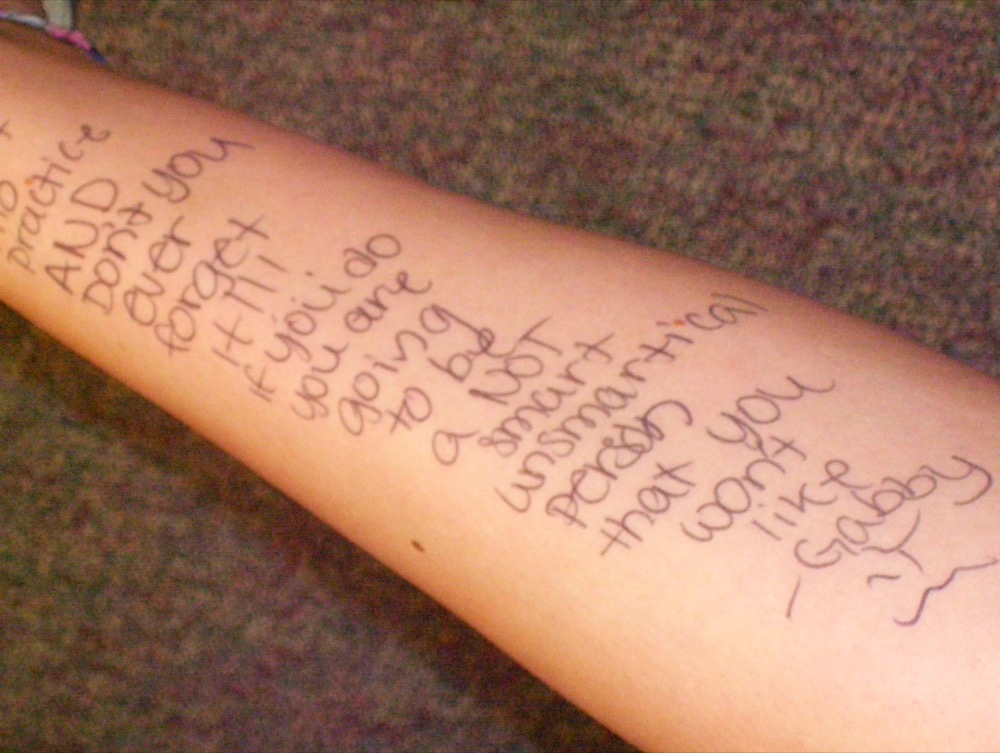 practice
AND
Don't you
ever
forget
it!!!
if you do
you are
going
to be
a NOT
smart
unsmartical
person
that you
won't
like
-Gabby